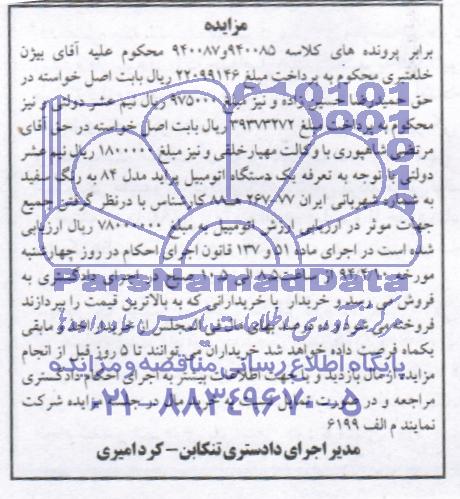 مزایده
برابر پرونده های کلاسه ۹۴۰۰۸۵و۹۴۰۰۸۷ محکوم علیه آقای بیژن
خلعتبری محکوم به پرداخت مبلغ ۲۲۰۹۹۱۴۶ ریال بابت اصل خواسته در
حق حمیدرضا حسین زاده و نیز مبلغ ۹۷۵۰۰۰ ریال نیم عشر دولتی و نیز
محکوم به پرداخت مبلغ ۳۹۳۷۳۲۷۲ ریال بابت اصل خواسته در حق آقای
مرتضی شاهپوری با وکالت مهیار خلقی و نیز مبلغ ۱۸۰۰۰۰۰ ریال نیم عشر
دولتی با توجه به تعرفه یک دستگاه اتومبیل پراید مدل ۸۴ به رنگ سفید
به شماره شهربانی ایران ۷۷-۲۶۷ ۸۸ کارشناس با درنظر گرفتن جمیع
جهات موثر در ارزیابی ارزش اتومبیل به مبلغ ۷۸۰۰۰۰۰۰ ریال ارزیابی
شده است در اجرای ماده ۵۱ و ۱۳۷ قانون اجرای احکام در روز چهارشنبه
مورخه از ساعت صبح در اجرای دادگستری به
فروش می رسد و خریدار یا خریدارانی که به بالاترین قیمت را بپردازند
فروخته می شود ده درصد بهای فی المجلس از خریدار اخذ و مابقی
یکماه فرصت داده خواهد شد خریداران می توانند تا ۵ روز قبل از انجام
مزایده از مال بازدید و یا جهت اطلاعات بیشتر به اجرای احکام دادگستری
مراجعه و در صورت تمایل جهت خرید مال در جلسه مزایده شرکت
نمایند م الف ۶۱۹۹
مدیر اجرای دادستری تنکابن - کرد امیری
ParsNamadData
پایگاه اطلاع رسانی مناقصه و مزایده
۰۲۱-۸۸۳۴۹۶۷۰-۵